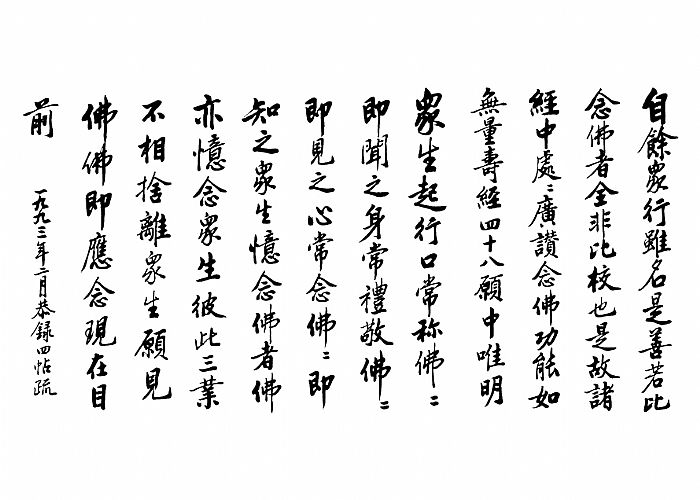 自餘衆行雖名是善若比
念佛者全非比校也是故諸
經中處〻廣讚念佛功能如
無量壽經四十八願中唯明
衆生起行口常称佛〻
即聞之身常禮敬佛〻
即見之心常念佛〻即
知之衆生憶念佛者佛
亦憶念衆生彼此三業
不相捨離衆生願見
佛佛即應念現在目
前
一九九三年二月恭録四帖疏